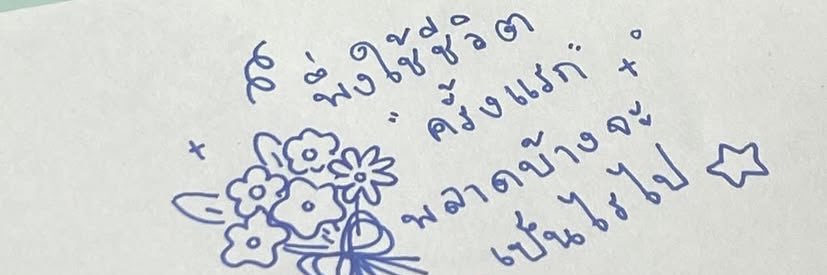 พึ่งใช้ชีวิต
"ครั้งแรก"
พลาดบ้างจะ
เป็นไรไป